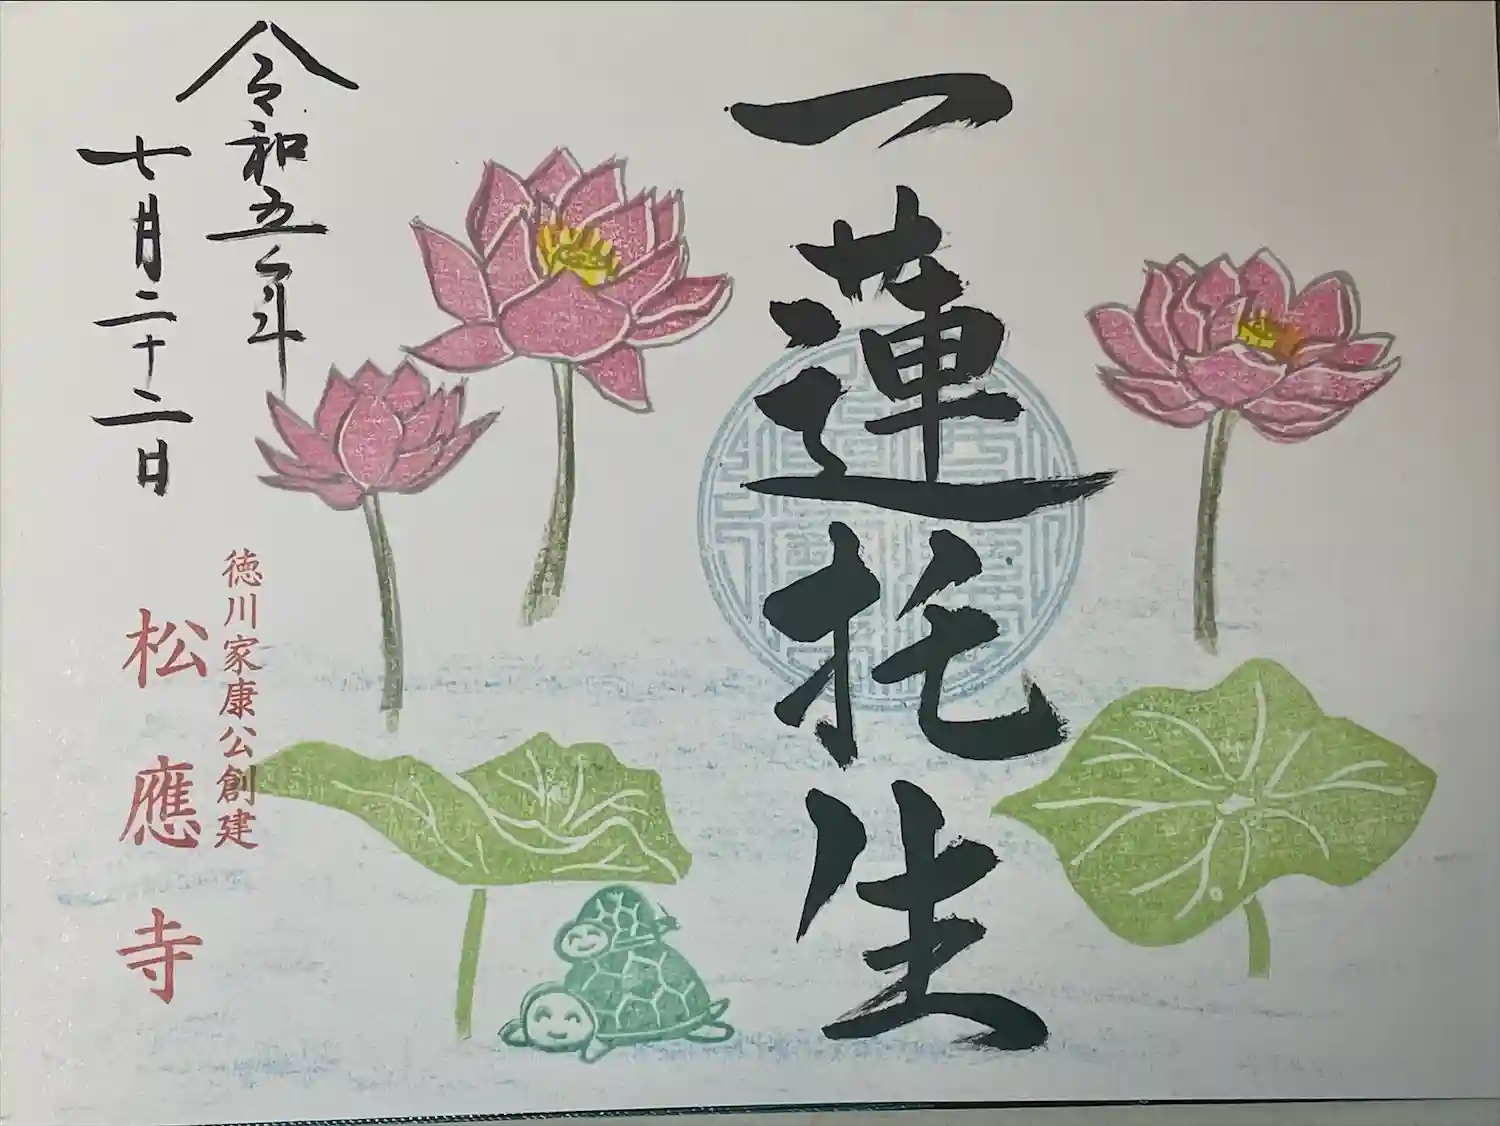 一蓮托生
令和五年
七月二十二日
徳川家康公創建
松應寺